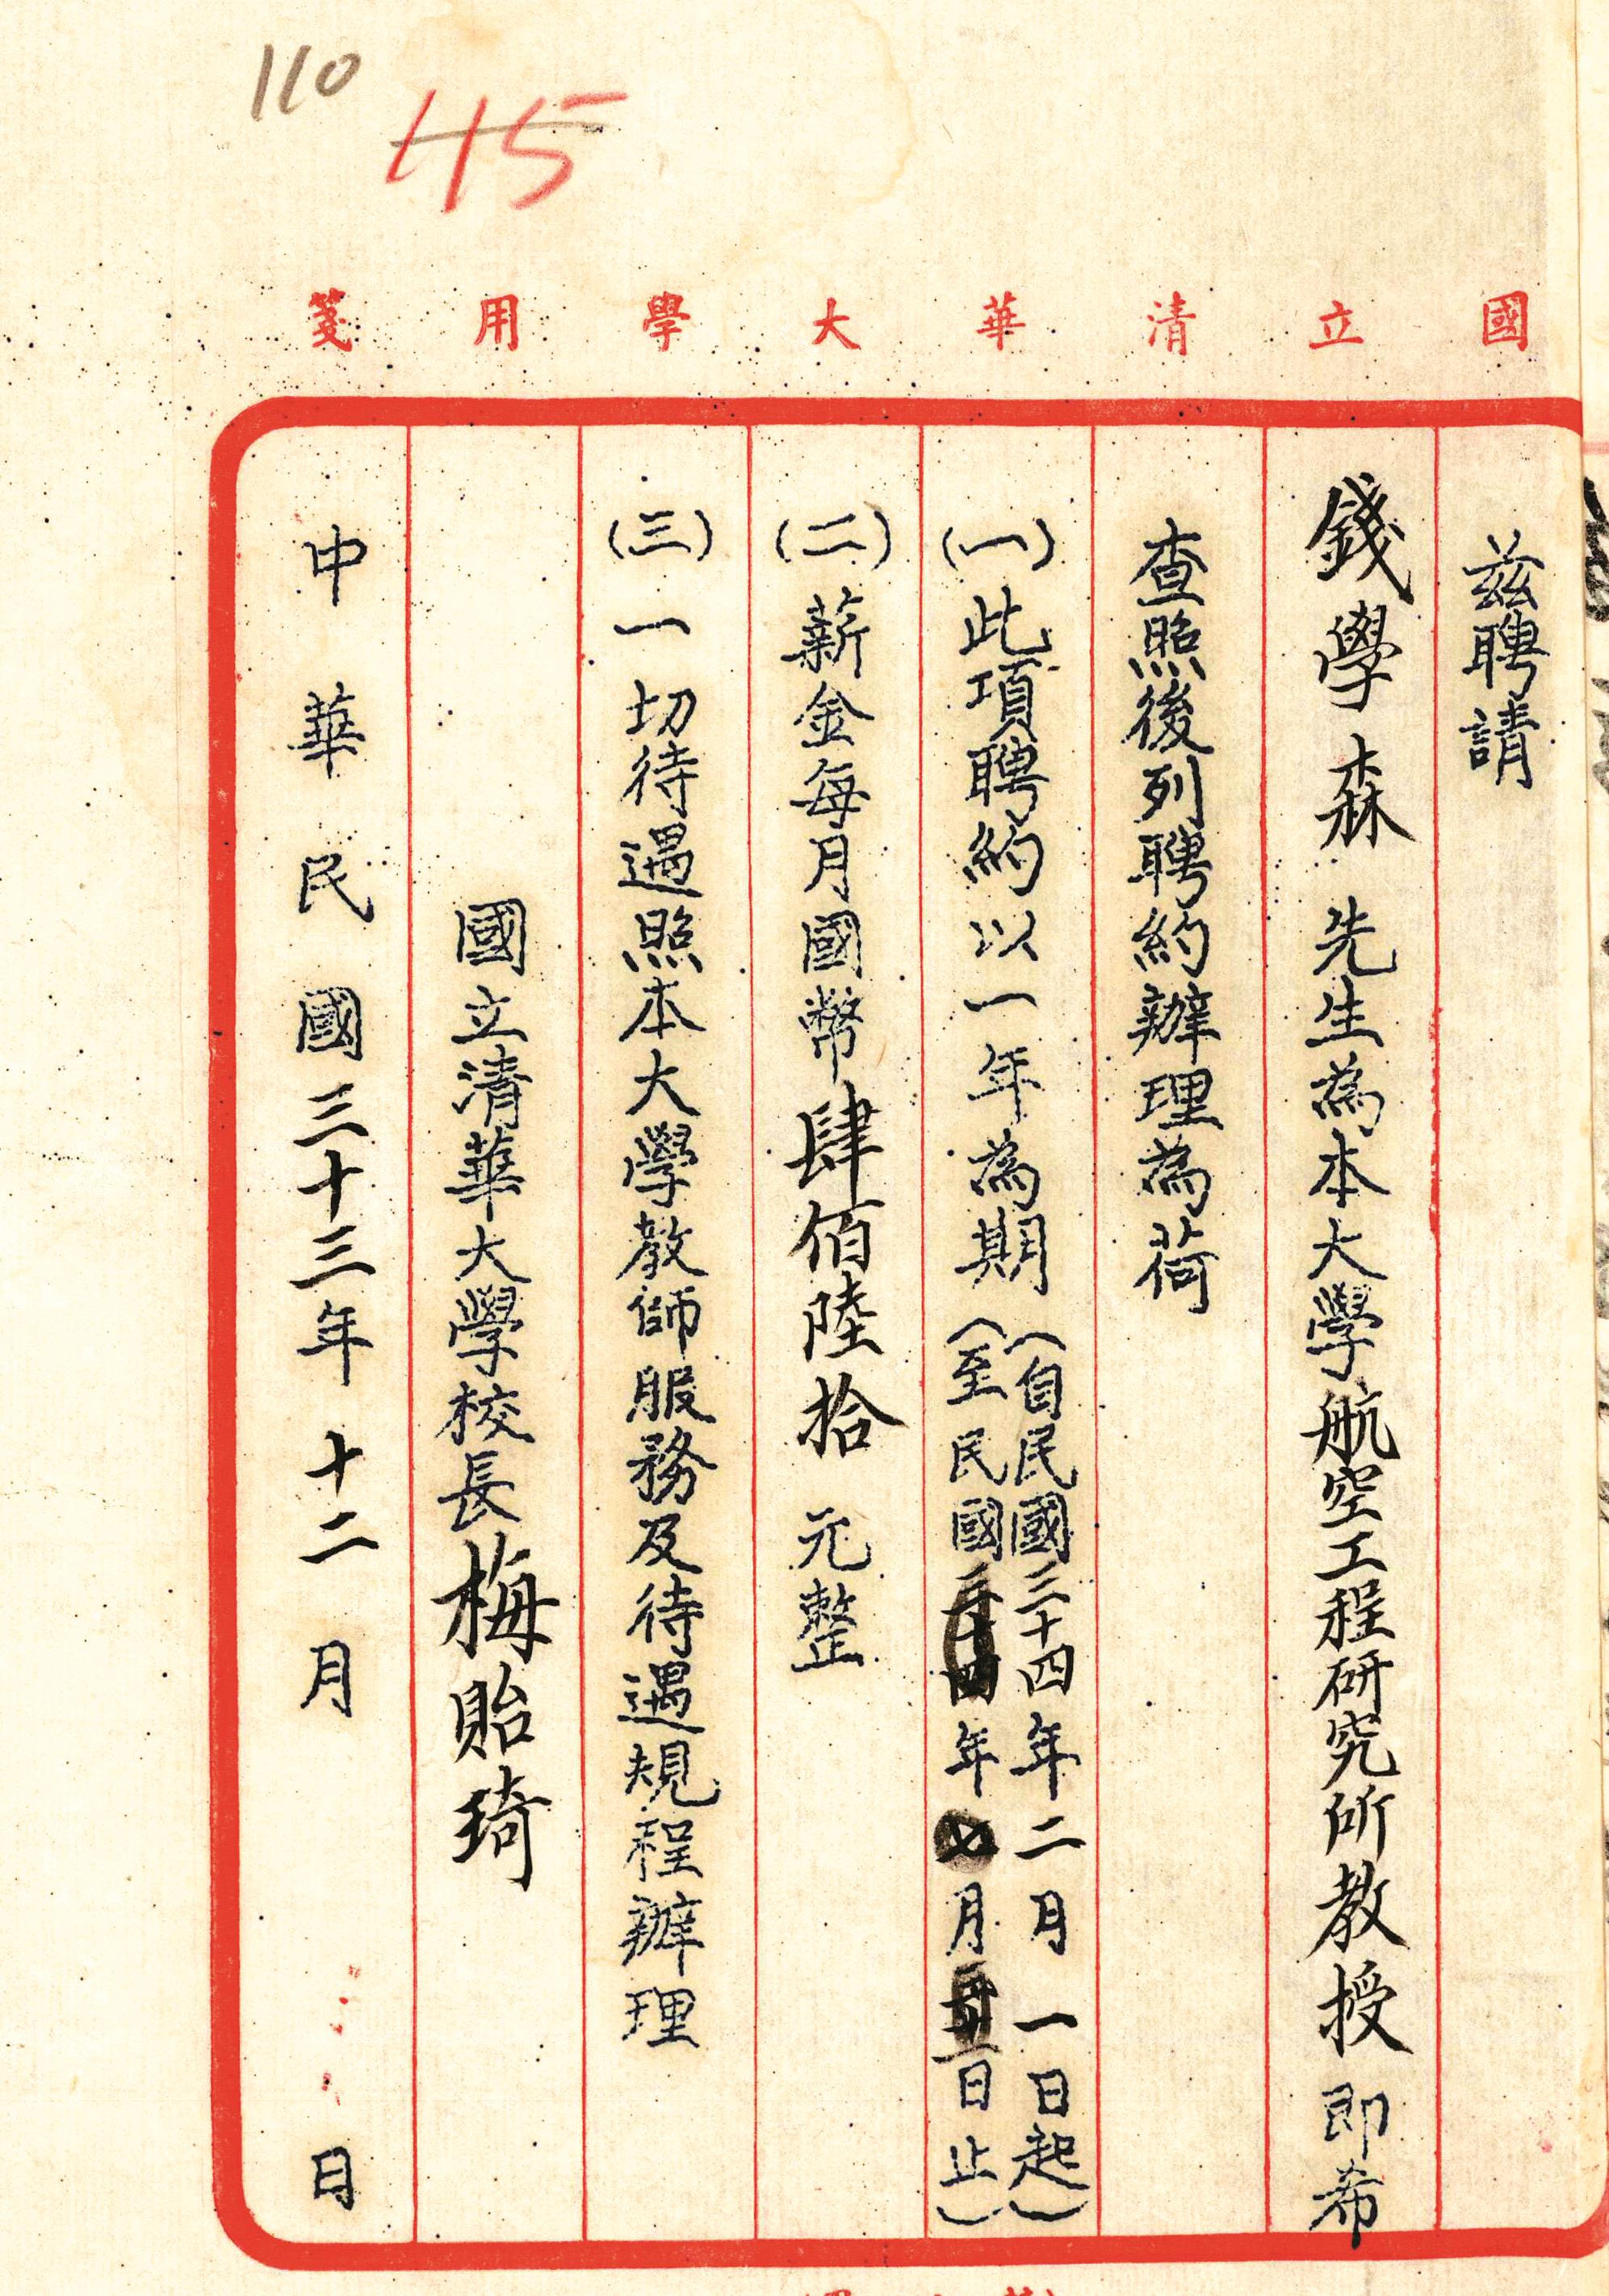 110
45
國立清華大學用箋
茲聘請
錢學森先生為本大學航空工程研究所教授即希
查照後列聘約辦理為荷
(一)此項聘約以一年為期
(自民國三十四年二月一日起)
(至民國年月日止)
(二)薪金每月國幣肆佰陸拾元整
(三)一切待遇照本大學教師服務及待遇規程辦理
國立清華大學校長梅貽琦
中華民國三十三年十二月日